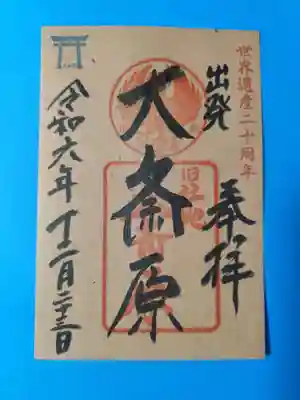 世界遺産二十周年
出発
奉拝
旧社地
大斎原
令和六年十二月二十三日